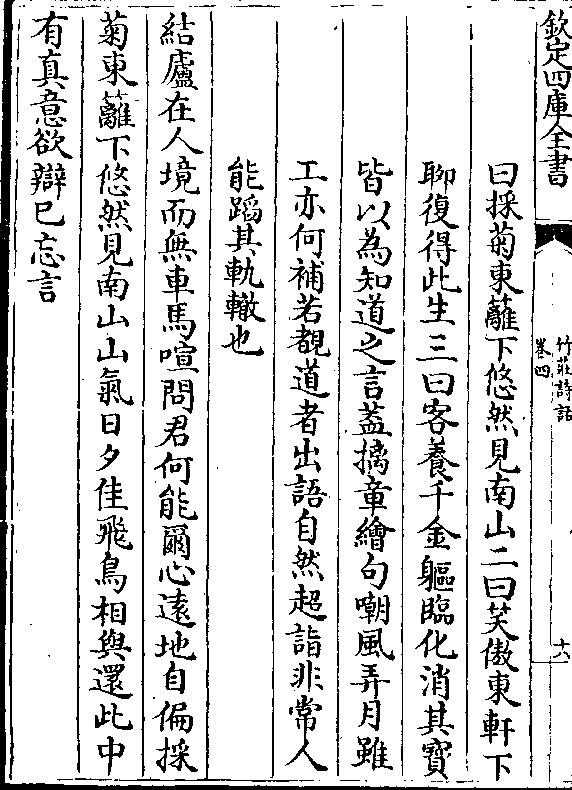 欽定四庫全書
竹莊詩話
卷四
十六
曰採菊東籬下悠然見南山二曰笑傲東軒下
聊復得此生三曰客養千金軀臨化消其寶
皆以為知道之言蓋摛章繪句嘲風弄月雖
工亦何補若覩道者出語自然超詣非常人
能蹈其軌轍也
結廬在人境而無車馬喧問君何能爾心遠地自偏採
菊東籬下悠然見南山山氣日夕佳飛鳥相與還此中
有真意欲辯已忘言